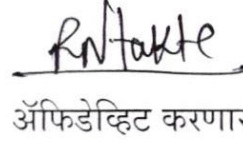 RNTakte
ऑफिडेव्हिट करणार